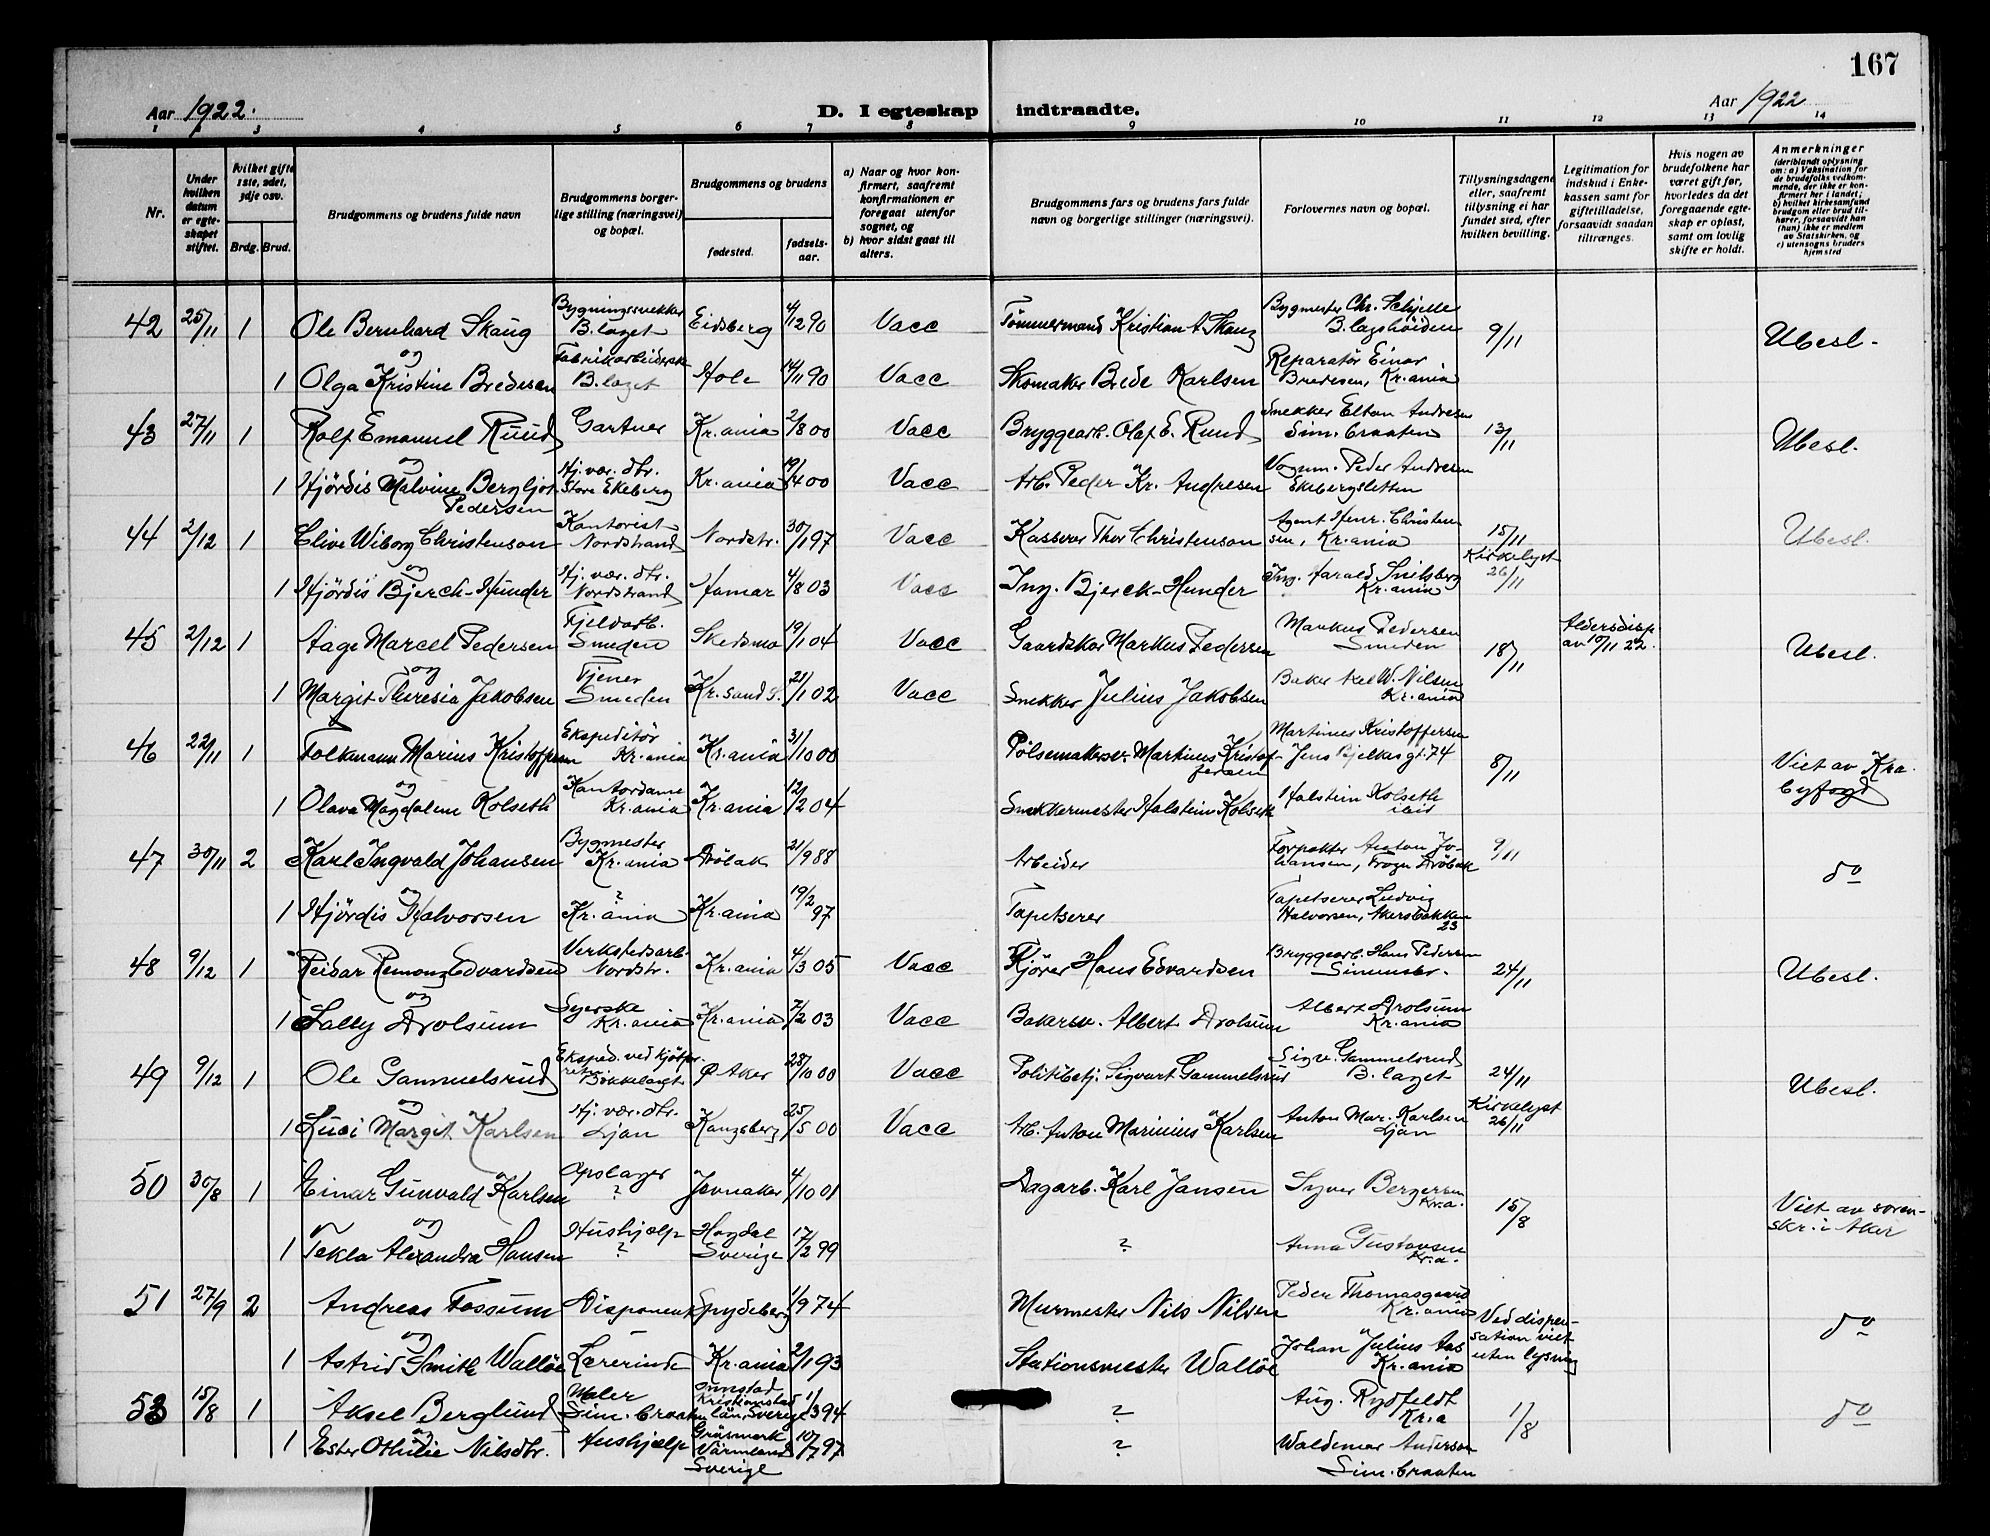 167
Aar 1922. D. I egteskap indtraadte. Aar 1922
1 2 3 4 5 6 7 8 9 10 11 12 13 14
Nr.
Under hvilken datum er egteskapet stiftet.
Hvilket gifte 1ste, 2det, 3dje osv.
Brdg. Brud.
Brudgommens og brudens fulde navn
Brudgommens borgerlige stilling (næringsvei) og bopæl.
Brudgommens og brudens
fødested.
fødselsaar.
a) Naar og hvor konfirmert, saafremt konfirmationen er foregaat utenfor sognet, og
b) hvor sidst gaat til alters.
Brudgommens fars og brudens fars fulde navn og borgerlige stillinger (næringsvei).
Forlovernes navn og bopæl.
Tillysningsdagene eller, saafremt tillysning ei har fundet sted, efter hvilken bevilling.
Legitimation for indskud i Enkekassen samt for giftetilladelse, forsaavidt saadan tiltrænges.
Hvis nogen av brudefolkene har været gift før, hvorledes da det foregaaende egteskap er opløst, samt om lovlig skifte er holdt.
Anmerkninger (deriblandt oplysning om: a) Vaksination for de brudefolks vedkommende, der ikke er konfirmert her i landet; b) hvilket kirkesamfund brudgom eller brud tilhører, forsaavidt han (hun) ikke er medlem av Statskirken, og c) utensogns bruders hjemsted
42 25/11 1 Ole Bernhard Skaug Bygningssnekker B.laget Eidsberg 4/12 90 Vacc Tømmermand Kristian A. Skaug Bygmester Chr. Schjelle B.lagshöiden 9/11 Ubesl.
og
1 Olga Kristine Bredesen Fabrikarbeiderske B.laget Hole 14/11 90 Vacc Skomaker Brede Karlsen Reparatör Einar Bredesen, Kr.ania
43 27/11 1 Rolf Emanuel Ruud Gartner Kr.ania 2/8 00 Vacc Bryggearb. Olaf E. Ruud Snekker Elton Andresen Sim.braaten 13/11 Ubesl.
og
1 Hjördis Malvine Bergljot Pedersen Hj.vær. dtr. Store Ekeberg Kr.ania 19/4 00 Vacc Arb. Peder Kr. Andresen Vognm. Peder Andresen Ekebergsletten
44 2/12 1 Clive Wiborg Christenson Kontorist Nordstrand Nordstr. 30/1 97 Vacc Kasserer Thor Christenson Agent Henr. Christensen, Kr.ania 15/11 Ubesl.
og
1 Hjördis Bjerck-Hunder Hj. vær. dtr. Nordstrand Hamar 4/8 03 Vacc Ing. Bjerck-Hunder Ing. Harald Snilsberg Kr.ania Kirkelyst 26/11
45 2/12 1 Aage Marcel Pedersen Fjeldarb. Smeden Skedsmo 19/1 04 Vacc Gaardskar Markus Pedersen Markus Pedersen Smeden 18/11 Aldersdisp. av 10/11 22. Ubesl.
og
1 Margit Theresia Jakobsen Tjener Smeden Kr.sand S. 21/1 02 Vacc Snekker Julius Jakobsen Baker Axel W. Nilsen Kr.ania
46 22/11 1 Folkmann Marius Kristoffersen Ekspeditör Kr.ania Kr.ania 31/10 00 Pölsemaker Martinus Kristoffersen Martinus Kristoffersen Jens Bjelkesgt. 74 8/11 Viet av Kra. byfogd
og
1 Olava Magdalene Kolseth Kontordame Kr.ania Kr.ania 12/2 04 Snekkermester Halstein Kolseth Halstein Kolseth ibid
47 30/11 2 Karl Ingvald Johansen Bygmester Kr.ania Dröbak 21/9 88 Arbeider Forpakter Anton Johansen, Frogn Dröbak 9/11 do
og
1 Hjördis Halvorsen ? Kr.ania Kr.ania 19/2 97 Tapetserer Tapetserer Ludvig Halvorsen, Akersbakken 23
48 9/12 1 Reidar Remong Edvardsen Verkstedsarb. Nordstr. Kr.ania 4/3 05 Vacc Kjörer Hans Edvardsen Bryggearb. Hans Pedersen 24/11 Ubesl.
og
1 Sally Drolsum Syerske Kr.ania Kr.ania 7/2 03 Vacc Bakersv. Albert Drolsum Albert Drolsum Kr.ania
49 9/12 1 Ole Gammelsrud Eksped. ved kjötfor. Ö Aker 28/10 00 Vacc Politibetj. Sigvart Gammelsrud Sigv. Gammelsrud B.laget 24/11 Ubesl.
og
1 Luci Margit Karlsen Hj. vær. dtr. Ljan Kongsberg 25/5 00 Vacc Arb. Anton Marinius Karlsen Anton Mar. Karlsen Ljan Kirkelyst 26/11
50 30/8 1 Einar Gunvald Karlsen Opslager ? Jevnaker 4/10 01 Dagarb. Karl Jansen Sigver Bergersen Kr.a. 15/8 Viet av sorenskr. i Aker
og
1 Tekla Alexandra Hansen Hushjælp ? Hogdal Sverige 17/2 99 ? Anna Gustavsen Kr.a.
51 27/9 2 Andreas Fossum Disponent Spydeberg 1/9 74 Murmester Nils Nilsen Peder Thomasgaard Kr.ania Ved dispensation viet uten lysning do
og
1 Astrid Smith Wallöe Lærerinde Kr.ania 2/1 93 Stationsmester Wallöe Johan Julius Aas Kr.ania
53 15/8 1 Aksel Berglund Maler Sim.braaten Kristianstad län, Sverige 1/3 94 ? Aug. Rydfeldt Kr.a 1/8 do
og
1 Ester Othilie Nilsdtr. Hushjælp Gräsmark Värmland Sverige 10/7 97 ? Waldemar Anderson Sim.braaten